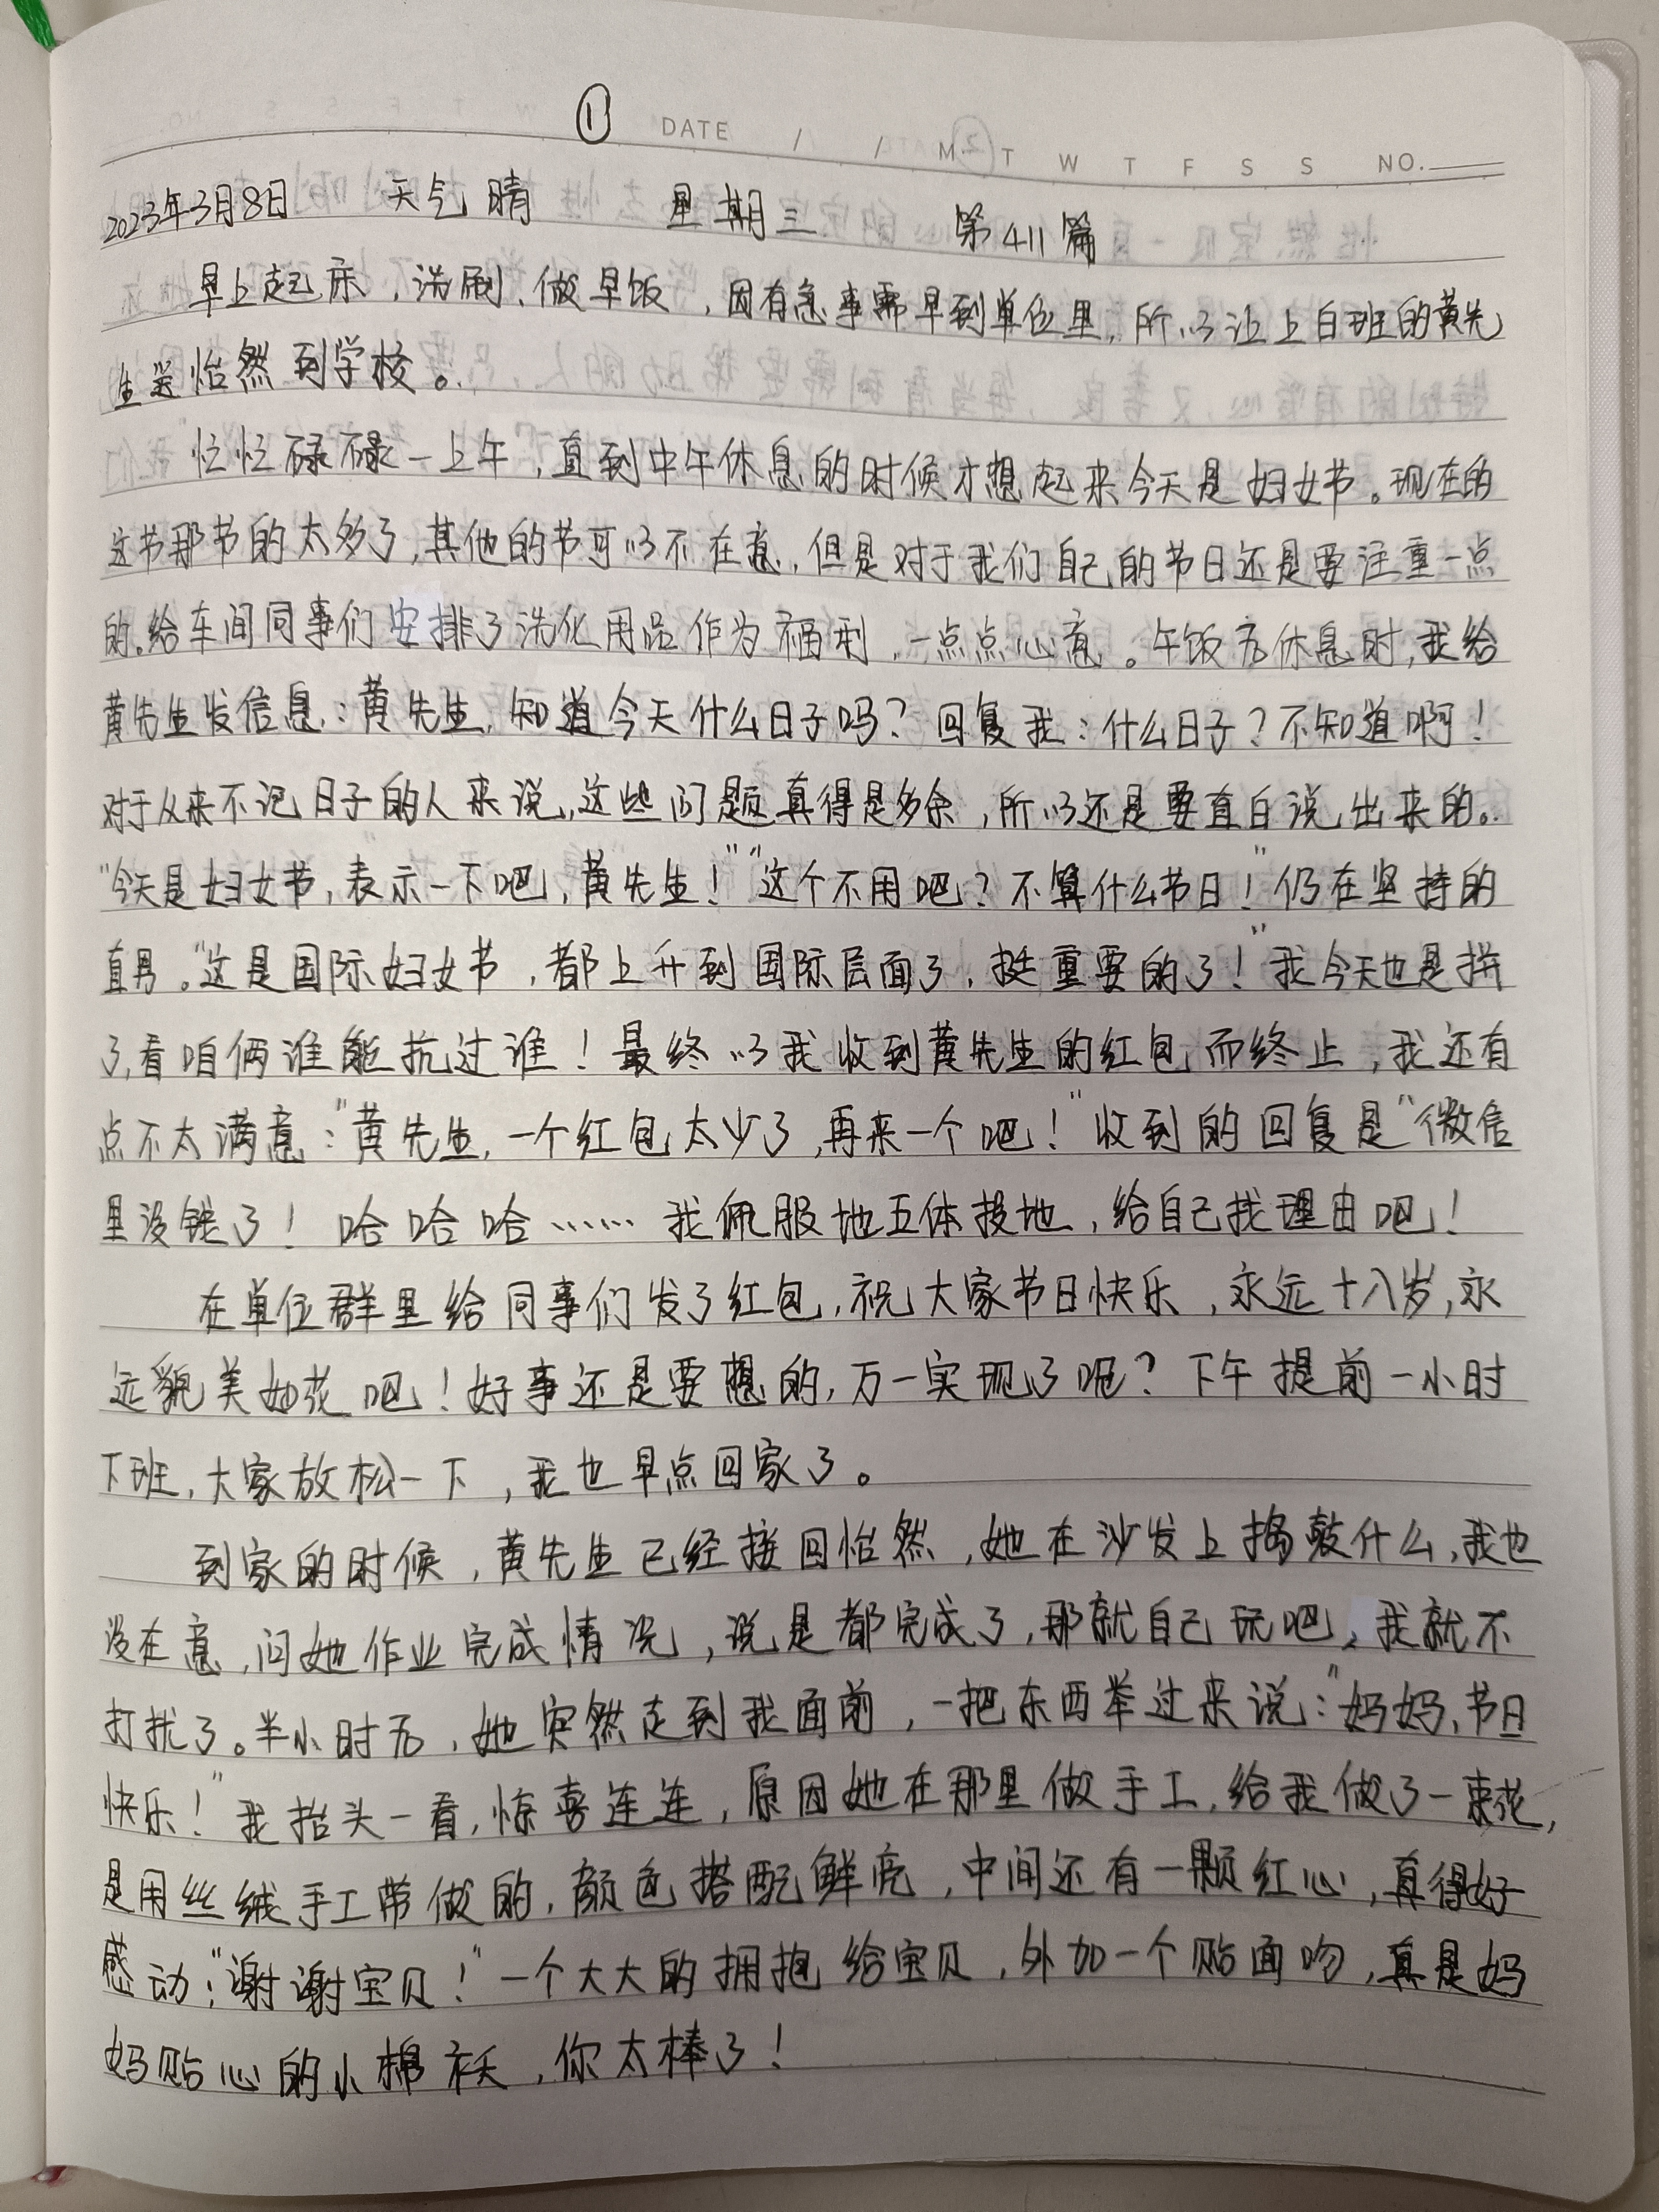 ① DATE / / M T W T F S S NO.
2023年3月8日 天气晴 星期三 第411篇
早上起床,洗刷、做早饭,因有急事需早到单位里,所以让上白班的黄先
生送怡然到学校。
忙忙碌碌一上午,直到中午休息的时候才想起来今天是妇女节。现在的
这节那节的太多了,其他的节可以不在意,但是对于我们自己的节日还是要注重一点
的。给车间同事们安排了洗化用品作为福利,一点点心意。午饭后休息时,我给
黄先生发信息:黄先生,知道今天什么日子吗?回复我:什么日子?不知道啊!
对于从来不记日子的人来说,这些问题真得是多余,所以还是要直白说出来的。
“今天是妇女节,表示一下吧,黄先生!”“这个不用吧?不算什么节日!”仍在坚持的
直男。“这是国际妇女节,都上升到国际层面了,挺重要的了!”我今天也是拼
了,看咱俩谁能抗过谁!最终以我收到黄先生的红包而终止,我还有
点不太满意:“黄先生,一个红包太少了,再来一个吧!”收到的回复是“微信
里没钱了!哈哈哈……我佩服地五体投地,给自己找理由吧!
在单位群里给同事们发了红包,祝大家节日快乐,永远十八岁,永
远貌美如花吧!好事还是要想的,万一实现了呢?下午提前一小时
下班,大家放松一下,我也早点回家了。
到家的时候,黄先生已经接回怡然,她在沙发上捣鼓什么,我也
没在意,问她作业完成情况,说是都完成了,那就自己玩吧,我就不
打扰了。半小时后,她突然走到我面前,一把东西举过来说:“妈妈,节日
快乐!”我抬头一看,惊喜连连,原因她在那里做手工,给我做了一束花,
是用丝绒手工带做的,颜色搭配鲜亮,中间还有一颗红心,真得好
感动;“谢谢宝贝!”一个大大的拥抱给宝贝,外加一个贴面吻,真是妈
妈贴心的小棉袄,你太棒了!